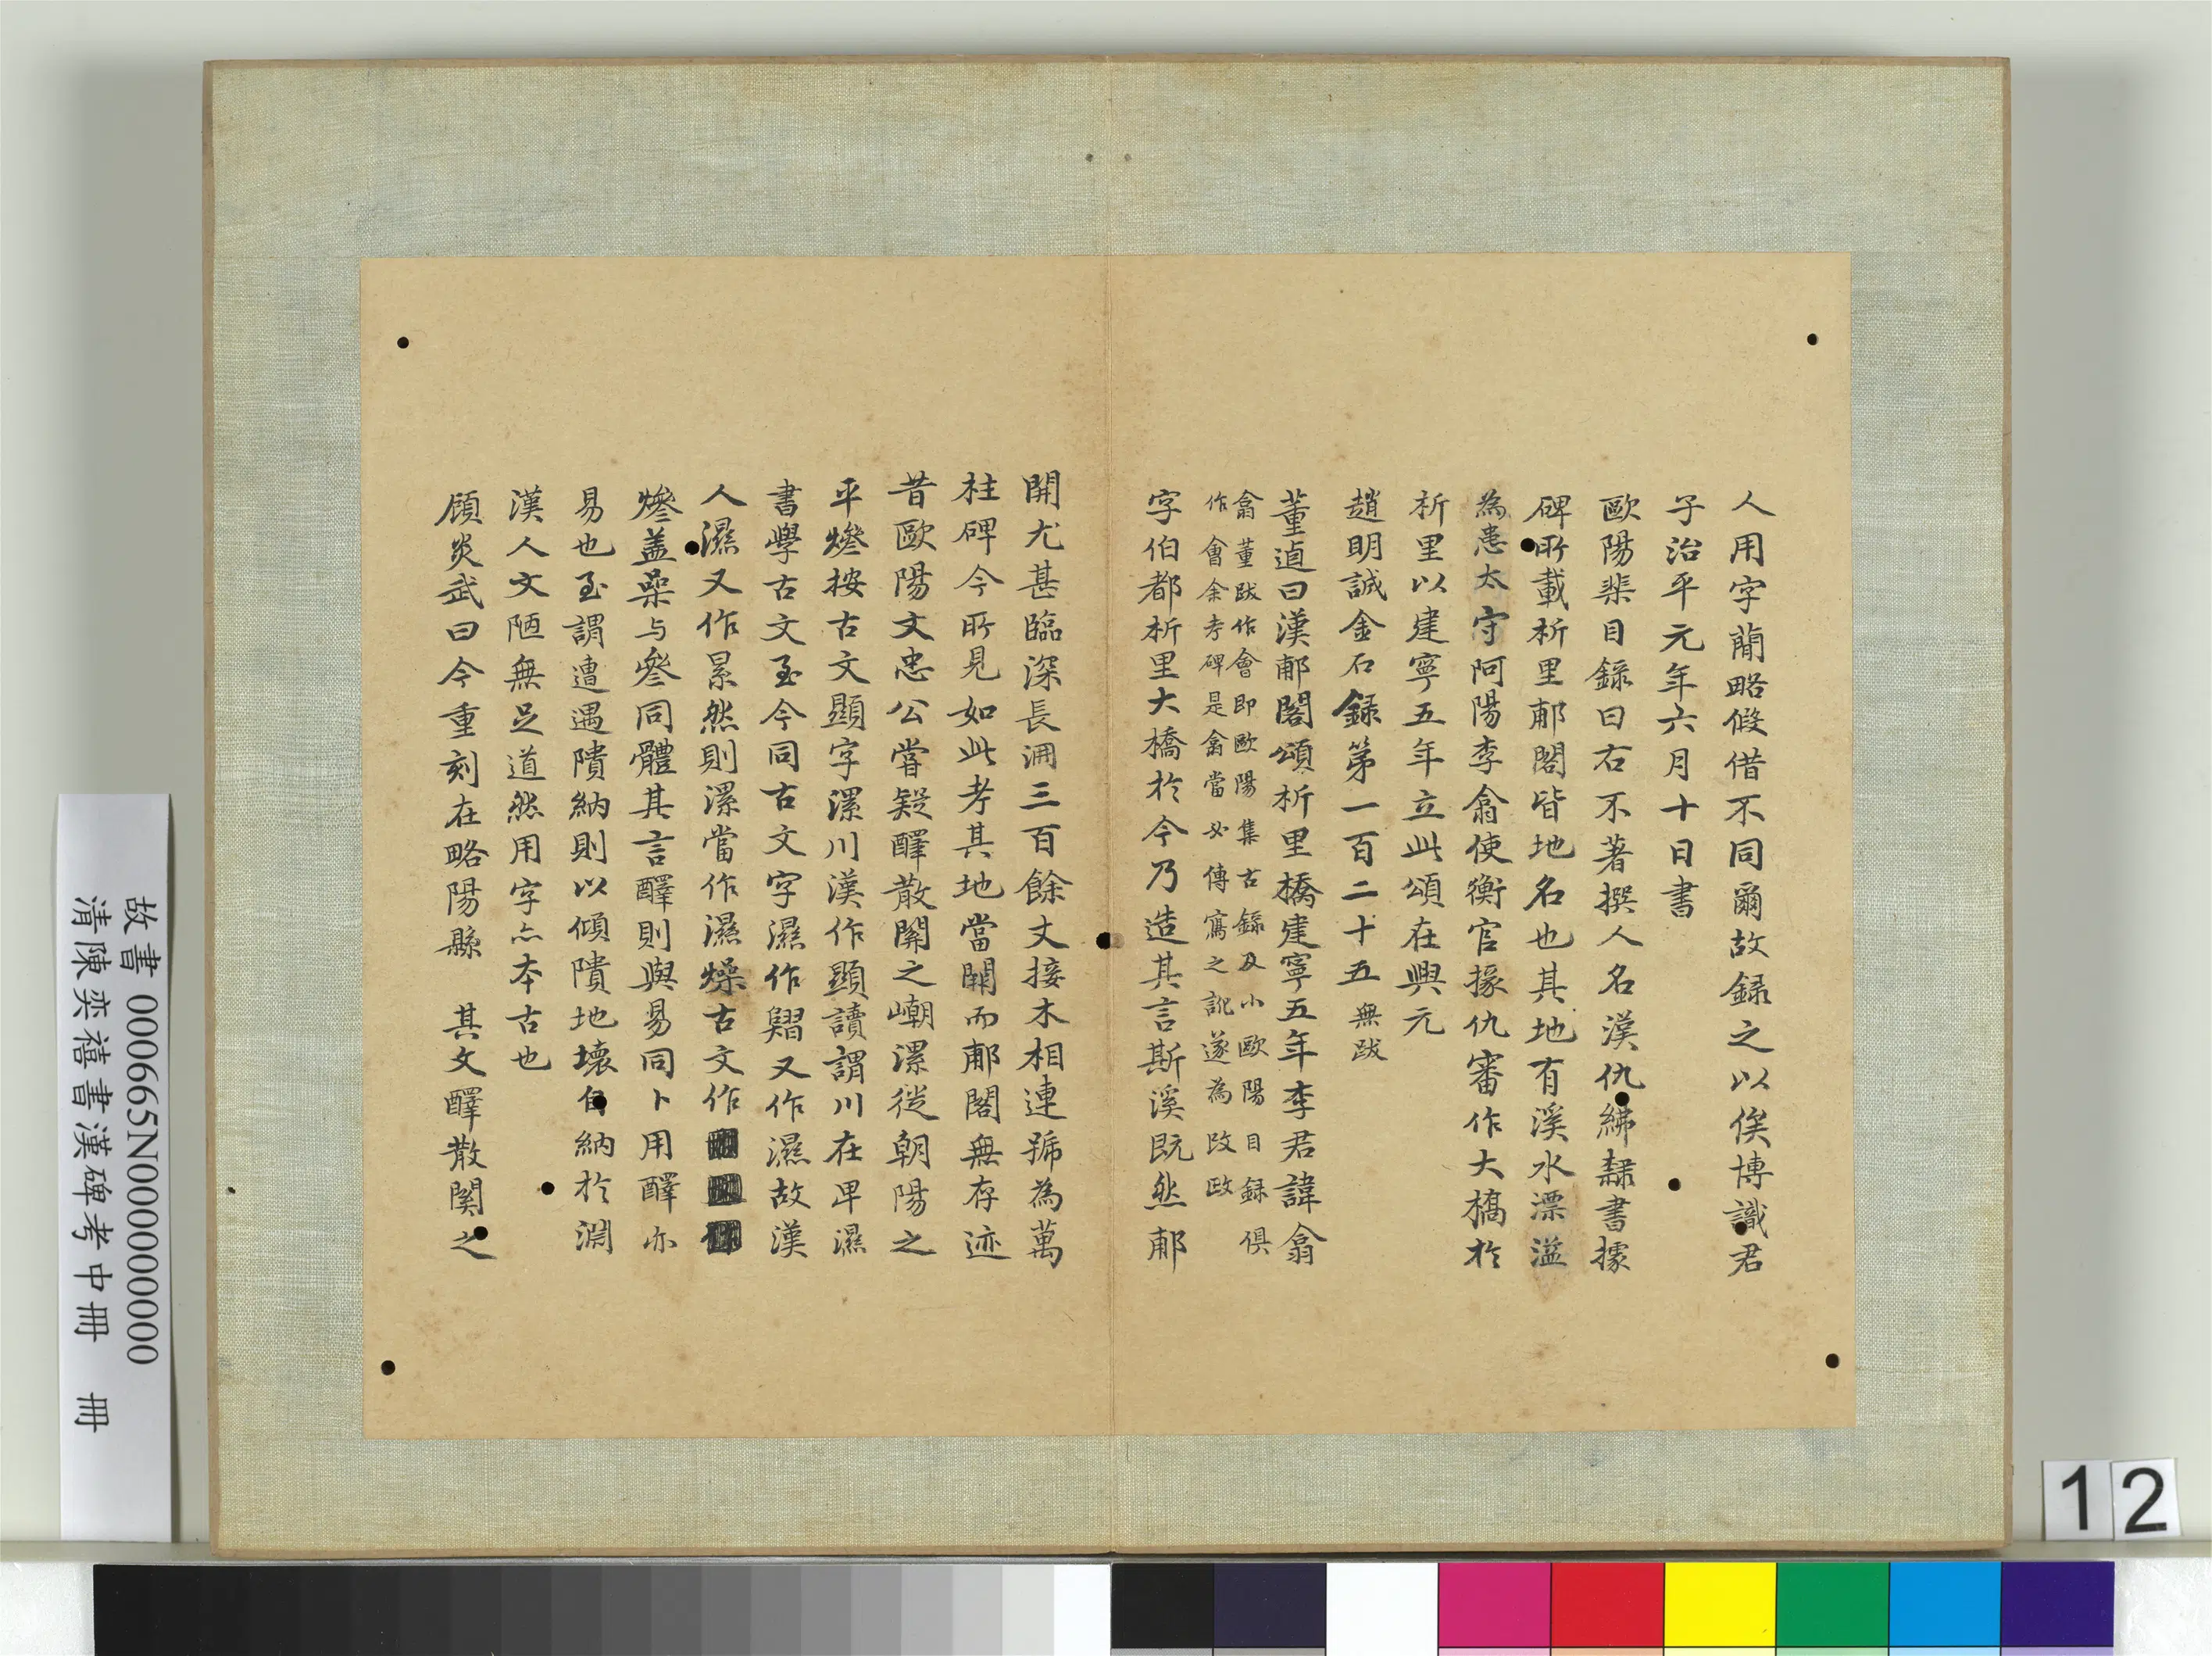 人用字簡略假借不同爾故録之以俟博識君
子治平元年六月十日書
歐陽棐目録曰右不著撰人名漢仇紼隸書據
碑所載析里郙閣皆地名也其地有溪水漂溢
為患太守阿陽李翕使衡官掾仇審作大橋於
析里以建寧五年立此頌在興元
趙明誠金石録第一百二十五 無跋
董逌曰漢郙閣頌析里橋建寧五年李君諱翕
翕董跋作會即歐陽集古録及小歐陽目録俱
作會余考碑是翕當必傳寫之訛遂為改政
字伯都析里大橋於今乃造其言斯溪既然郙
開尤甚臨深長淵三百餘丈接木相連號為萬
柱碑今所見如此考其地當開而郙閣無存迹
昔歐陽文忠公嘗疑醳散關之嶃漯徙朝陽之
平燓按古文顯字漯川漢作顯讀謂川在甲濕
書學古文至今同古文字濕作㬎又作濕故漢
人濕又作累然則漯當作濕燥古文作
燓蓋喿与參同體其言醳則與易同卜用醳亦
易也至謂遭遇隤納則以傾隤地壞自納於淵
漢人文陋無足道然用字亦本古也
顧炎武曰今重刻在略陽縣 其文醳散関之
故書 000665N000000000
清陳奕禧書漢碑考中冊 冊
12